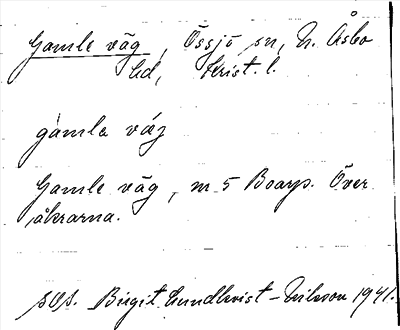 Gamle väg, Össjö sn, N. Åsbo
hd, Krist. l.
gàmla vág
Gamle väg, m 5 Boarp. Över
åkrarna.
Birgit Lundkvist-Nilsson 1941.